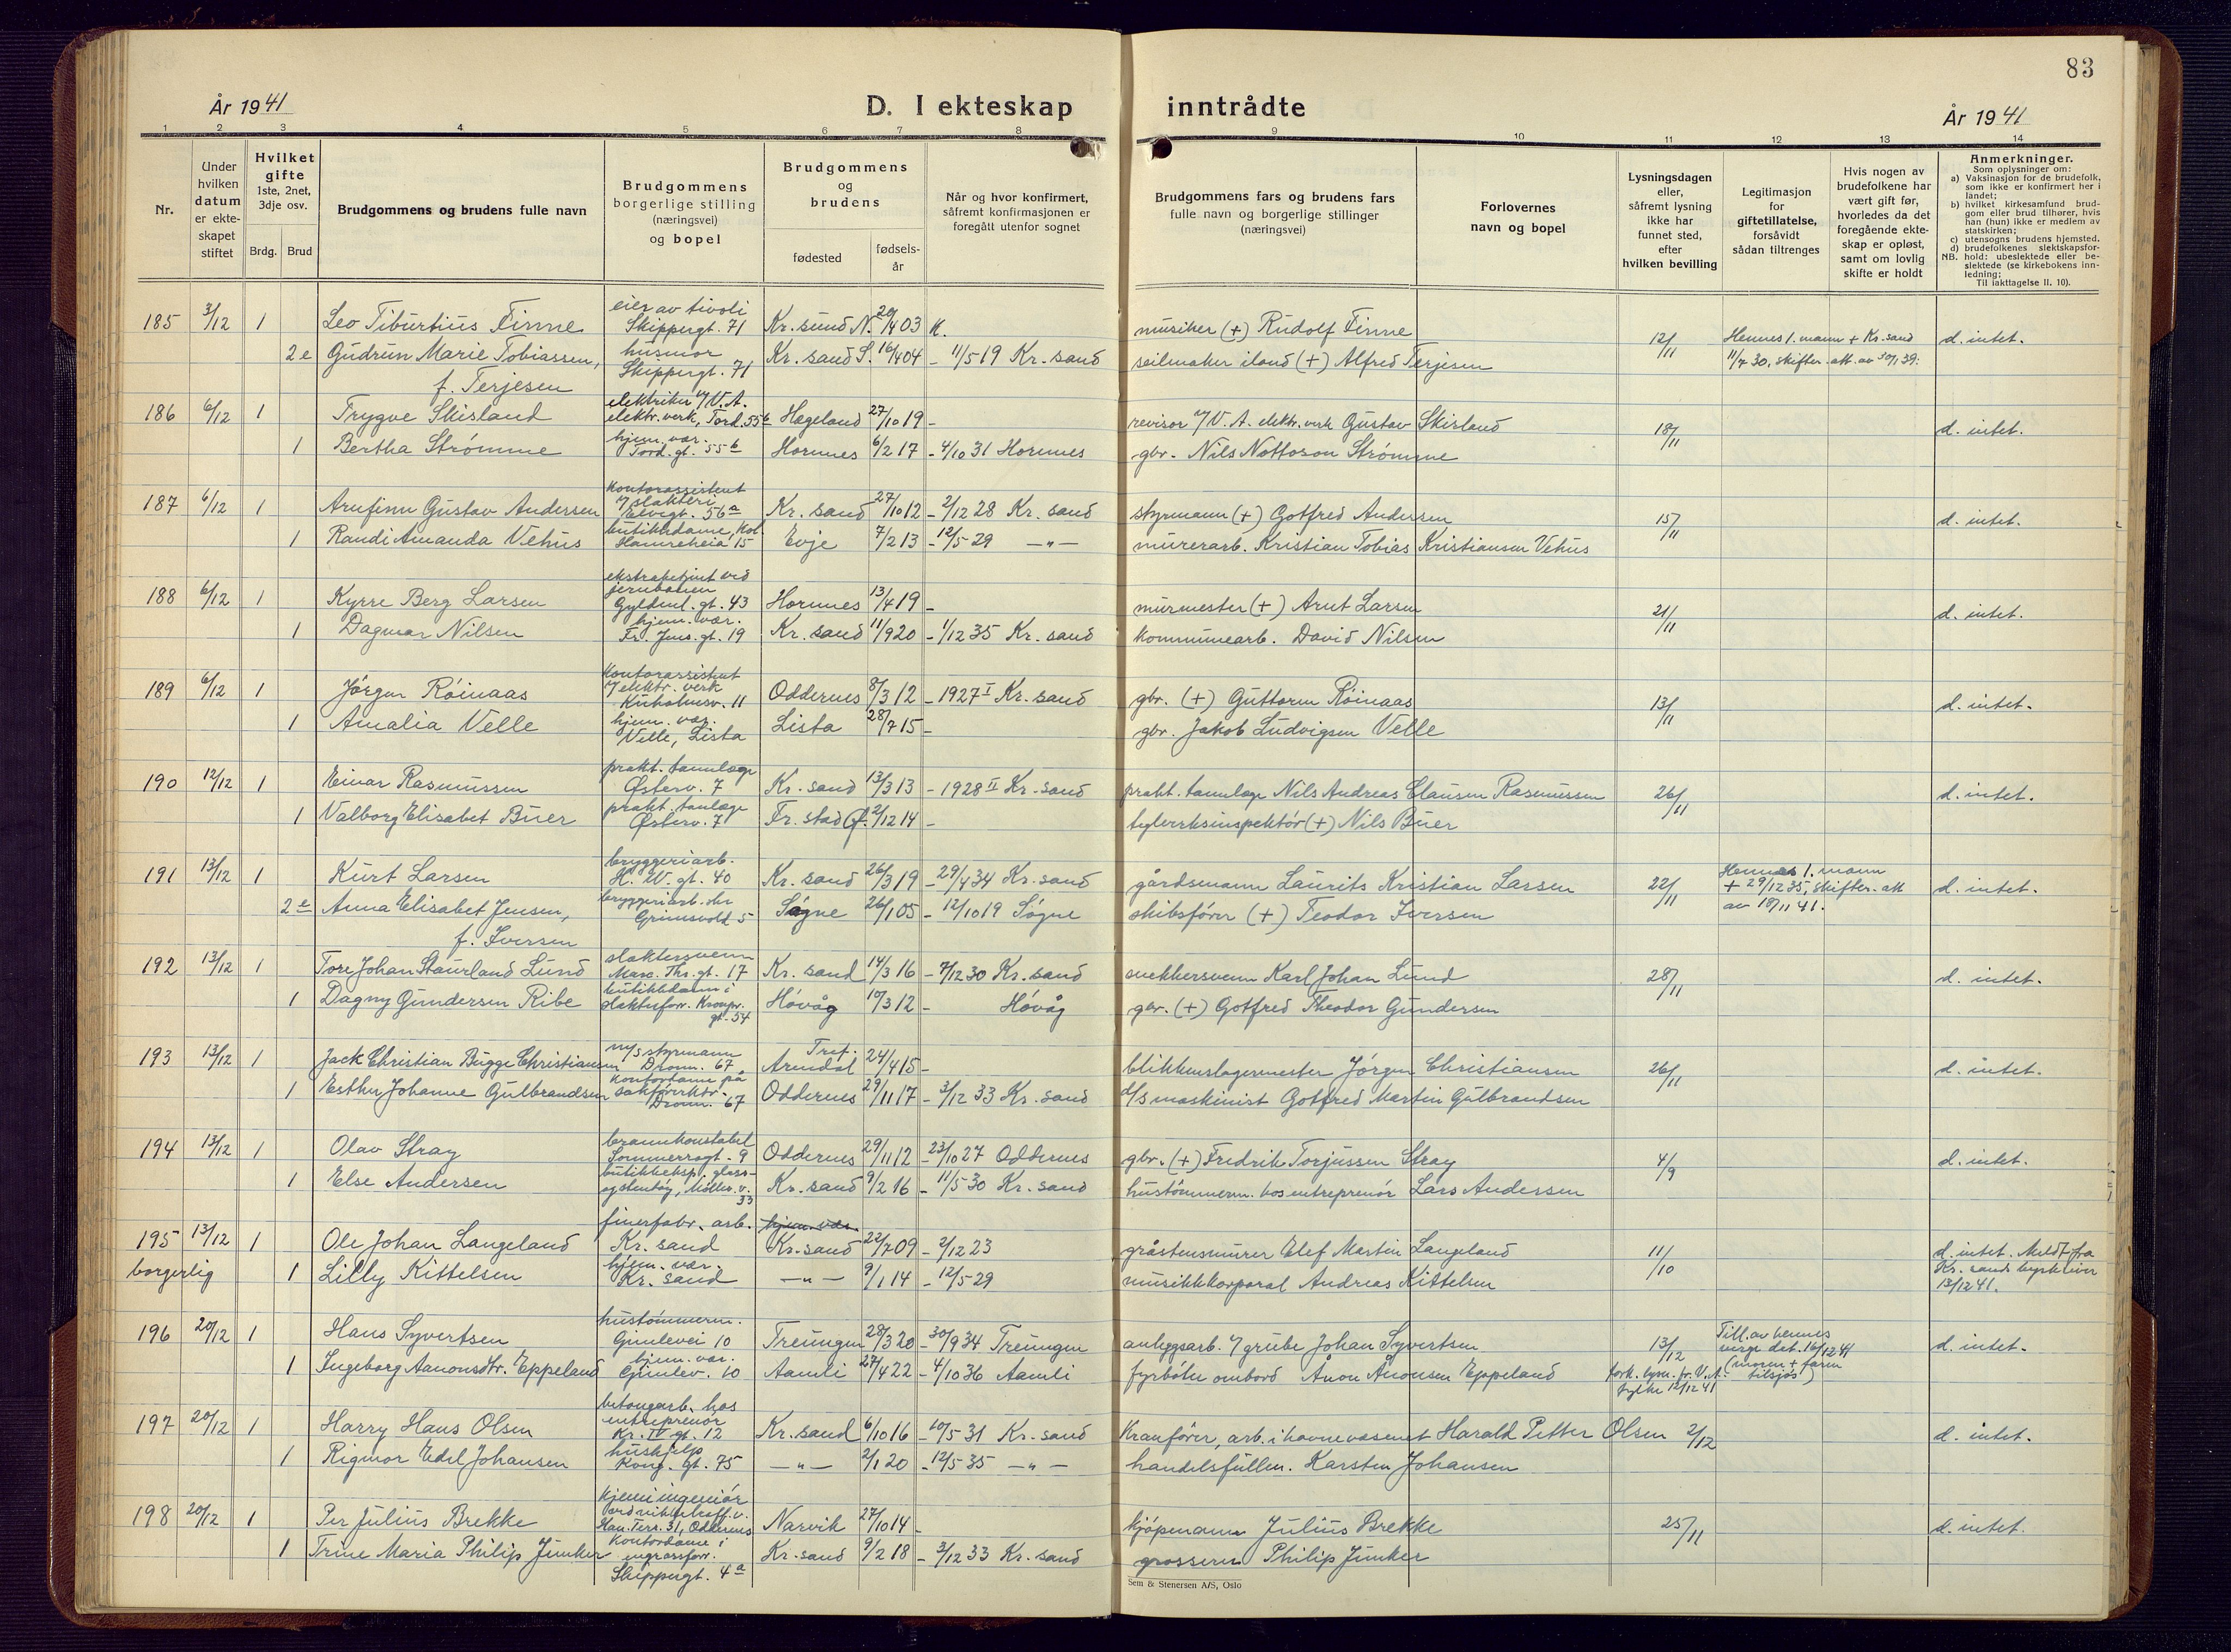 83
År 1941
D. I ekteskap inntrådte
År 1941
1 2 3 4 5 6 7 8 9 10 11 12 13 14
Nr.
Under hvilken datum er ekteskapet stiftet
Hvilket gifte 1ste, 2net, 3dje osv.
Brdg. Brud
Brudgommens og brudens fulle navn
Brudgommens borgerlige stilling (næringsvei) og bopel
Brudgommens og brudens
fødested
fødselsår
Når og hvor konfirmert, såfremt konfirmasjonen er foregått utenfor sognet
Brudgommens fars og brudens fars fulle navn og borgerlige stillinger (næringsvei)
Forlovernes navn og bopel
Lysningsdagen eller, såfremt lysning ikke har funnet sted, efter hvilken bevilling
Legitimasjon for giftetillatelse, forsåvidt sådan tiltrenges
Hvis nogen av brudefolkene har vært gift før, hvorledes da det foregående ekteskap er opløst, samt om lovlig skifte er holdt
Anmerkninger.
Som oplysninger om:
a) Vaksinasjon for de brudefolk, som ikke er konfirmert her i landet;
b) hvilket kirkesamfund brudgom eller brud tilhører, hvis han (hun) ikke er medlem av statskirken;
c) utensogns brudens hjemsted.
d) brudefolkenes slektskapsforhold: ubeslektede eller beslektede (se kirkebokens innledning;
NB.
Til iakttagelse II. 10).
185 3/12 1 Leo Tiburtius Finne eier av tivoli Skippergt. 71 Kr.sund N. 20/4 03 K. musiker (+) Rudolf Finne 12/11 Hennes 1. mann + Kr.sand 11/7 30, skifter. att. av 30/1 39. d. intet.
2e Gudrun Marie Tobiassen, f. Terjesen husmor Skippergt. 71 Kr. sand S. 16/4 04 - 11/5 19 Kr. sand seilmaker iland (+) Alfred Terjesen
186 6/12 1 Trygve Skisland elektriker v/V.A. elektr. verk, Tord. 55b Hægeland 27/10 19 - revisor v/V.A. elektr. verk Gustav Skisland 18/11 d. intet.
1 Bertha Strømme hjem. vær. Tord. gt. 55b Hornnes 6/2 17 - 4/10 31 Hornnes gbr. Nils Nottoson Strømme
187 6/12 1 Arnfinn Gustav Andersen kontorassistent v/slakteri Elvegt. 56a Kr. sand 27/10 12 - 2/12 28 Kr. sand styrmann (+) Gotfred Andersen 15/11 d. intet.
1 Randi Amanda Vehus butikkdame, Kol. Hamreheia 15 Evje 7/2 13 - 12/5 29 —"— murerarb. Kristian Tobias Kristiansen Vehus
188 6/12 1 Kyrre Berg Larsen ekstrabetjent ved jernbanen Gyldenl. gt. 43 Hornnes 13/4 19 - murmester (+) Arnt Larsen 21/11 d. intet.
1 Dagmar Nilsen hjem. vær. Fr. Jens. gt. 19 Kr. sand 11/9 20 - 1/12 35 Kr. sand kommunearb. David Nilsen
189 6/12 1 Jørgen Røinaas kontorassistent v/elektr. verk Kuholmsv. 11 Oddernes 8/3 12 - 1927 I Kr. sand gbr. (+) Guttorm Røinaas 13/11 d. intet.
1 Amalia Velle hjem. vær. Velle, Lista Lista 28/7 15 - gbr. Jakob Ludvigsen Velle
190 12/12 1 Einar Rasmussen prakt. tannlæge Østerv. 7 Kr. sand 13/3 13 - 1928 II Kr. sand prakt. tannlæge Nils Andreas Clausen Rasmussen 26/11 d. intet.
1 Valborg Elisabet Buer prakt. tanlæge Østerv. 7 Fr. stad Ø. 2/12 14 - teglverksinspektør (+) Nils Buer
191 13/12 1 Kurt Larsen bryggeriarb. H. W. gt. 40 Kr. sand 26/3 19 - 29/4 34 Kr. sand gårdsmann Laurits Kristian Larsen 22/11 Hennes 1. mann + 29/12 35, skifter. att av 18/11 41. d. intet.
2e Anna Elisabet Jensen, f. Iversen bryggeriarb.ske Grimsvold 5 Søgne 26/1 05 - 12/10 19 Søgne skibsfører (+) Teodor Iversen
192 13/12 1 Tore Johan Staurland Lund slaktersvenn Marc. Thr. gt. 17 Kr. sand 14/3 16 - 7/12 30 Kr. sand snekkersvenn Karl Johan Lund 28/11 d. intet.
1 Dagny Gundersen Ribe butikkdame i slakterforr. Kronpr. gt. 54 Høvåg 10/3 12 - Høvåg gbr. (+) Gotfred Theodor Gundersen
193 13/12 1 Jack Christian Bugge Christiansen m/s styrmann Dronn. 67 Tref. Arendal 24/4 15 - blikkenslagermester Jørgen Christiansen 26/11 d. intet.
1 Esther Johanne Gulbrandsen kontordame på sakførerktr. Dronn. 67 Oddernes 29/11 17 - 3/12 33 Kr. sand d/s maskinist Gotfred Martin Gulbrandsen
194 13/12 1 Olav Stray brannkonstabel Sommerrogt. 9 Oddernes 29/11 12 - 23/10 27 Oddernes gbr. (+) Fredrik Torjussen Stray 4/9 d. intet.
1 Else Andersen butikkeksp. glass- og stentøy, Møllev. v. 33 Kr. sand 9/2 16 - 11/5 30 Kr. sand hustømmerm. hos entreprenør Lars Andersen
195 13/12 1 Ole Johan Langeland finerfabr. arb. Kr. sand hjem. vær. Kr. sand 22/7 09 - 2/12 23 gråstensmurer Elef Martin Langeland 11/10 d. intet. Meldt fra Kr. sands byskriver 13/12 41.
borgerlig 1 Lilly Kittelsen hjem. vær. Kr. sand —"— 9/1 14 - 12/5 29 musikkkorporal Andreas Kittelsen
196 20/12 1 Hans Syvertsen hustømmerm. Gimlevei 10 Treungen 28/3 20 - 30/9 34 Treungen anleggsarb. v/grube Johan Syvertsen 13/12 Till. av hennes verge dat. 16/12 41 (morm + farm tilsjøs) d. intet.
1 Ingeborg Aanonsdtr. Eppeland hjem. vær. Gimlev. 10 Aamli 27/4 22 - 4/10 36 Aamli fyrbøter ombord Ånon Ånonsen Eppeland fork. lysn. fr. V.A. fylke 12/12 41
197 20/12 1 Harry Hans Olsen betongarb. hos entreprenør Kr. IV gt. 12 Kr. sand 6/10 16 - 10/5 31 Kr. sand Kranfører, arb. i havnevæsenet Harald Petter Olsen 2/12 d. intet.
1 Rigmor Edel Johansen hushjelp Kong. gt. 75 —"— 2/1 20 - 12/5 35 —"— handelsfullm. Karsten Johansen
198 20/12 1 Per Julius Brekke kjemiingeniør ved nikkelraff. v. Han. Terr. 31, Oddernes Narvik 27/10 14 - kjøpmann Julius Brekke 25/11 d. intet.
1 Trine Maria Philip Junker kontordame i engrosforr. Skippergt. 4a Kr. sand 9/2 18 - 3/12 33 Kr. sand grosserer Philip Junker
Sem & Stenersen A/S, Oslo